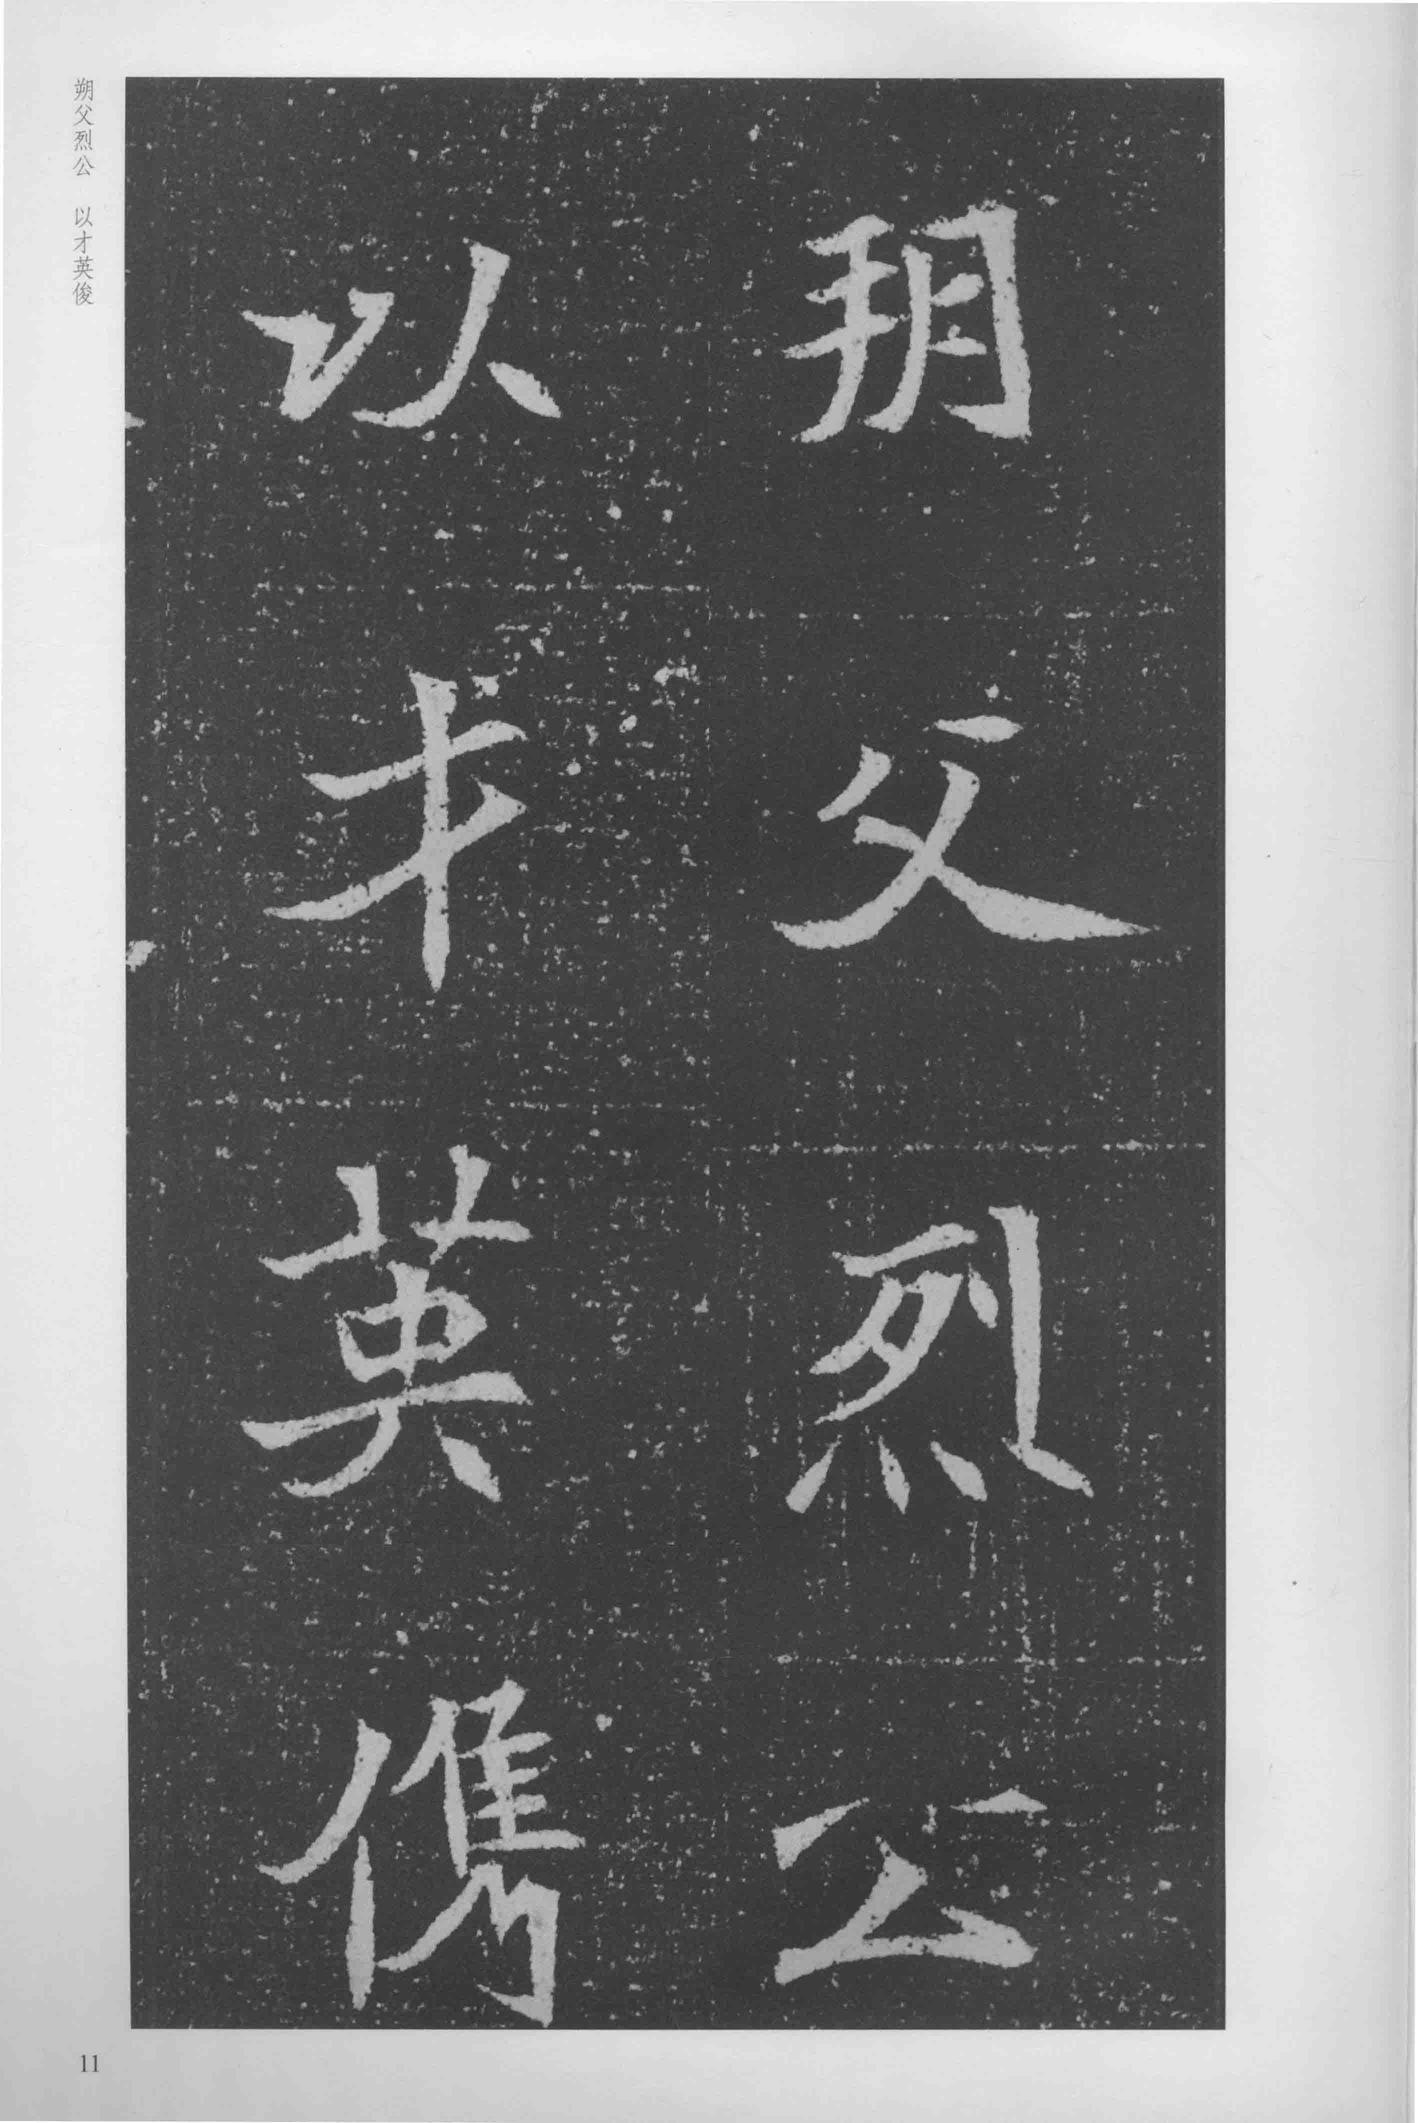 朔父烈公
以才英儁
朔父烈公 以才英俊
11